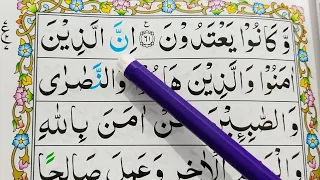 وَّكَانُوْا يَعْتَدُوْنَ ﴿٦١﴾ اِنَّ الَّذِيْنَ
اٰمَنُوْا وَالَّذِيْنَ وَالنَّصٰرٰى
وَالصّٰبِـِٕيْنَ اٰمَنَ بِاللّٰهِ
الْاٰخِرِ وَعَمِلَ صَالِحًا